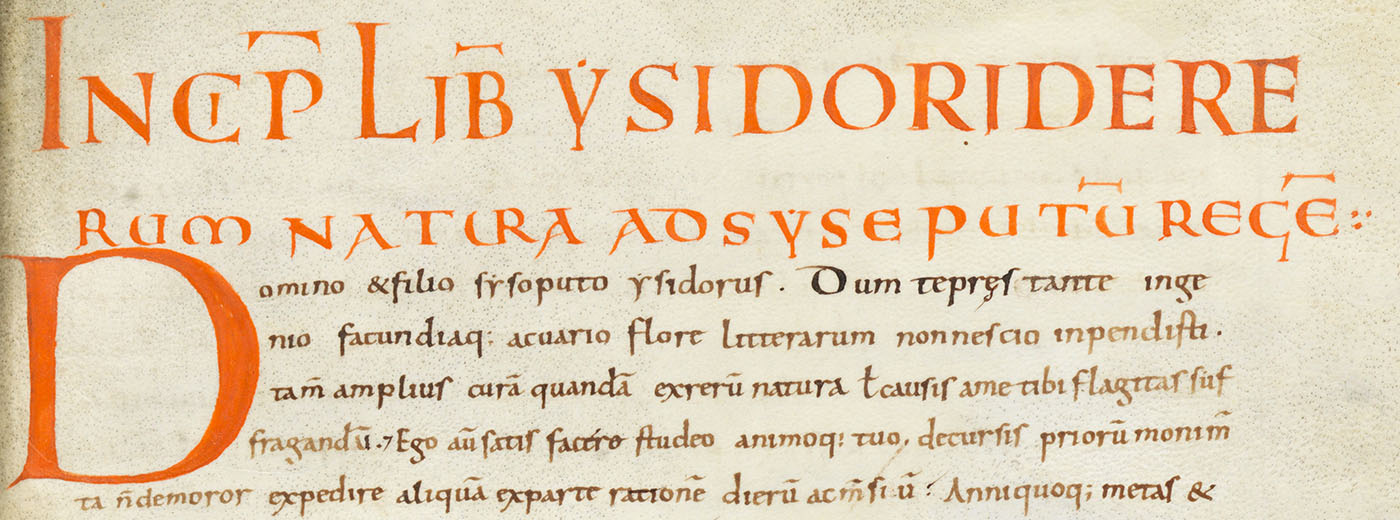 INCIP̅ LIB̅ ẎSIDORI DE RE
RUM NATURA AD SẎSEPUTŪ REGĒ
Domino & filio sẏsoputo ẏsidorus . Dum te pręstante inge
nio facundiaq; ac uario flore litterarum non nescio inpendisti .
tam̅ amplius curā quandā ex rerū natura ł causis a me tibi flagitas suf
fragandū . Ego aū satis facere studeo animoq; tuo, decursis priorū monim̅
ta n̅ demoror expedire aliquā ex parte rationē dierū ac m̅siū . Anni quoq; metas &